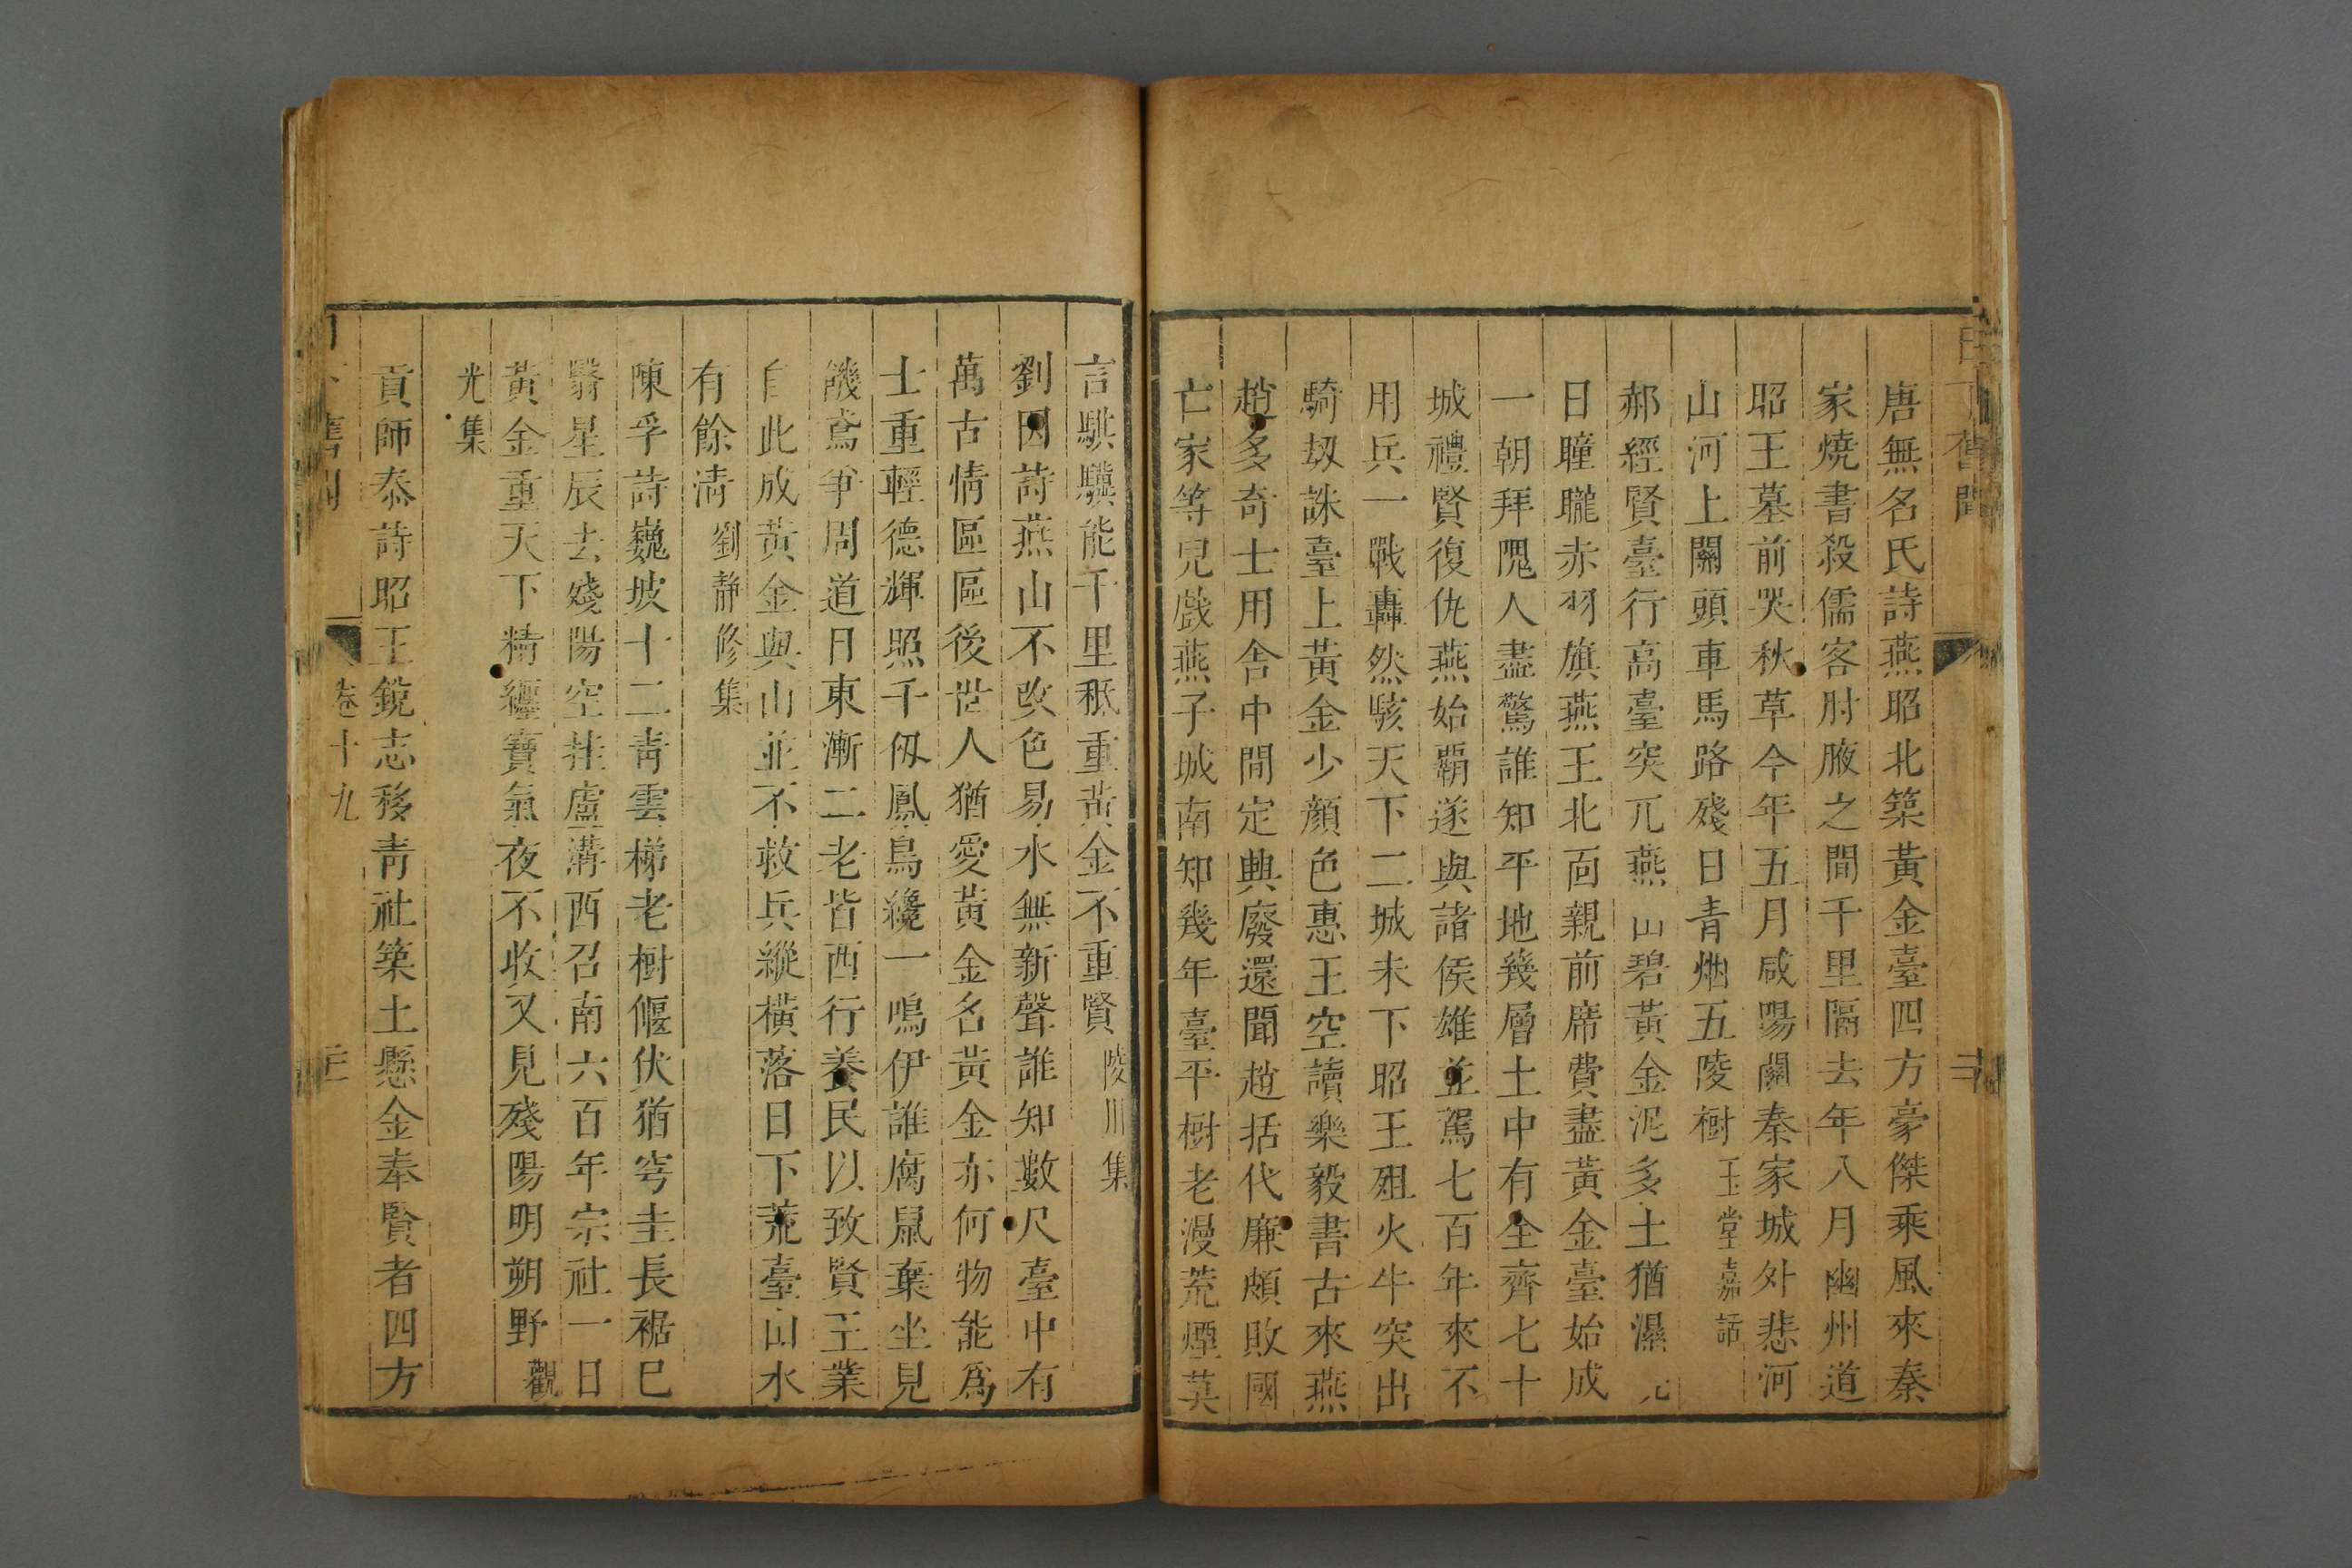 唐無名氏詩燕昭北築黃金臺四方豪傑乘風來秦
家燒書殺儒客肘腋之間千里隔去年八月幽州道
昭王墓前哭秋草今年五月咸陽關秦家城外悲河
山河上關頭車馬路殘日青烟五陵樹玉堂嘉話
郝經賢臺行高臺突兀燕山碧黃金泥多土猶濕
日瞳曨赤羽旗燕王北面親前席費盡黃金臺始成
一朝拜隗人盡驚誰知平地幾層土中有全齊七十
城禮賢復仇燕始霸遂與諸侯雄並駕七百年來不
用兵一戰轟然駭天下二城未下昭王殂火牛突出
騎劫誅臺上黃金少顏色惠王空讀樂毅書古來燕
趙多奇士用舍中間定興廢還聞趙括代廉頗敗國
亡家等兒戲燕子城南知幾年臺平樹老漫荒煙莫
言騏驥能千里秪重黃金不重賢陵川集
劉因詩燕山不改色易水無新聲誰知數尺臺中有
萬古情區區後世人猶愛黃金名黃金亦何物能爲
士重輕德輝照千仭鳳鳥纔一鳴伊誰腐鼠棄坐見
饑鳶爭周道日東漸二老皆西行養民以致賢王業
自此成黃金與山並不救兵縱橫落日下荒臺山水
有餘清劉靜修集
陳孚詩巍坡十二青雲梯老樹偃伏猶穹圭長裾已
翳星辰去殘陽空挂盧溝西召南六百年宗社一日
黃金重天下精纏寶氣夜不收又見殘陽明朔野觀
光集
貢師泰詩昭王銳志移青社築土懸金奉賢者四方
卷十九